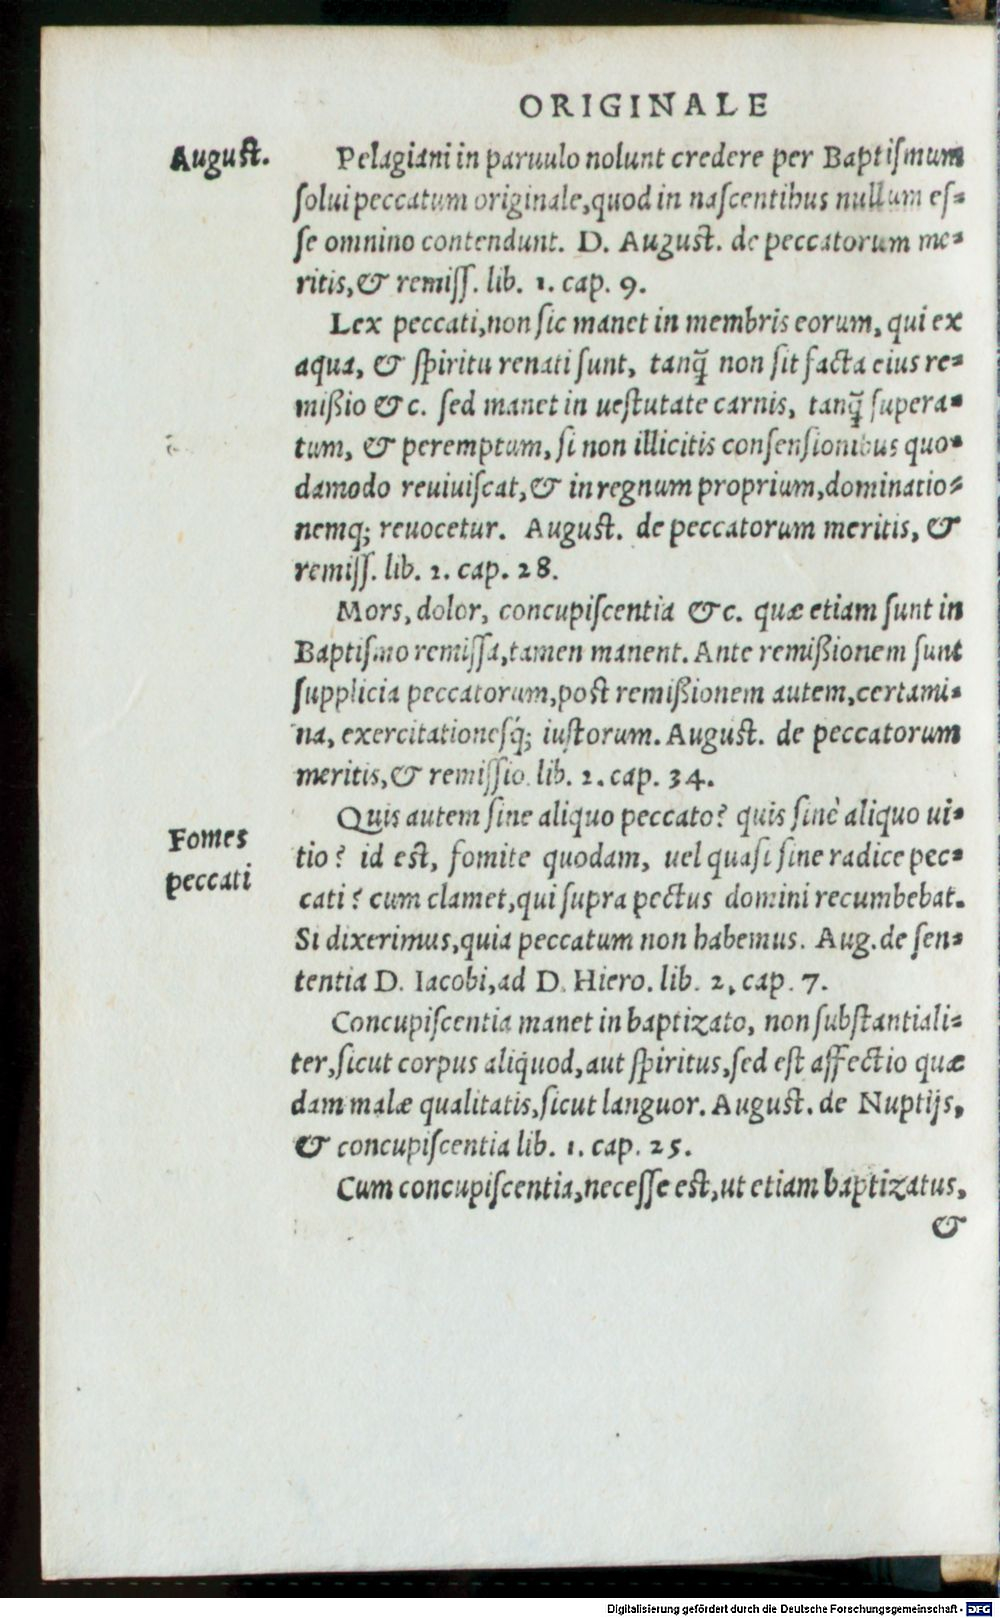 ORIGINALE
August.
Pelagiani in paruulo nolunt credere per Baptiſmum
ſolui peccatum originale, quod in naſcentibus nullum eſ-
ſe omnino contendunt. D. August. de peccatorum me-
ritis, & remiſſ. lib. 1. cap. 9.
Lex peccati, non ſic manet in membris eorum, qui ex
aqua, & ſpiritu renati ſunt, tanq̃ non ſit facta eius re-
mißio &c. ſed manet in ueſtutate carnis, tanq̃ ſupera-
tum, & peremptum, ſi non illicitis conſenſionibus quo-
damodo reuiuiſcat, & in regnum proprium, dominatio-
nemq; reuocetur. August. de peccatorum meritis, &
remiſſ. lib. 2. cap. 28.
Mors, dolor, concupiſcentia &c. quæ etiam ſunt in
Baptiſmo remiſſa, tamen manent. Ante remißionem ſunt
ſupplicia peccatorum, post remißionem autem, certami-
na, exercitationeſq́; iuſtorum. August. de peccatorum
meritis, & remiſſio. lib. 2. cap. 34.
Quis autem ſine aliquo peccato? quis ſinè aliquo ui-
Fomes
peccati
tio? id est, fomite quodam, uel quaſi ſine radice pec-
cati? cum clamet, qui ſupra pectus domini recumbebat.
Si dixerimus, quia peccatum non habemus. Aug. de ſen-
tentia D. Iacobi, ad D. Hiero. lib. 2, cap. 7.
Concupiſcentia manet in baptizato, non ſubſtantiali-
ter, ſicut corpus aliquod, aut ſpiritus, ſed eſt affectio quæ
dam malæ qualitatis, ſicut languor. August. de Nuptijs,
& concupiſcentia lib. 1. cap. 25.
Cum concupiſcentia, neceſſe eſt, ut etiam baptizatus,
&
Digitalisierung gefördert durch die Deutsche Forschungsgemeinschaft - DFG